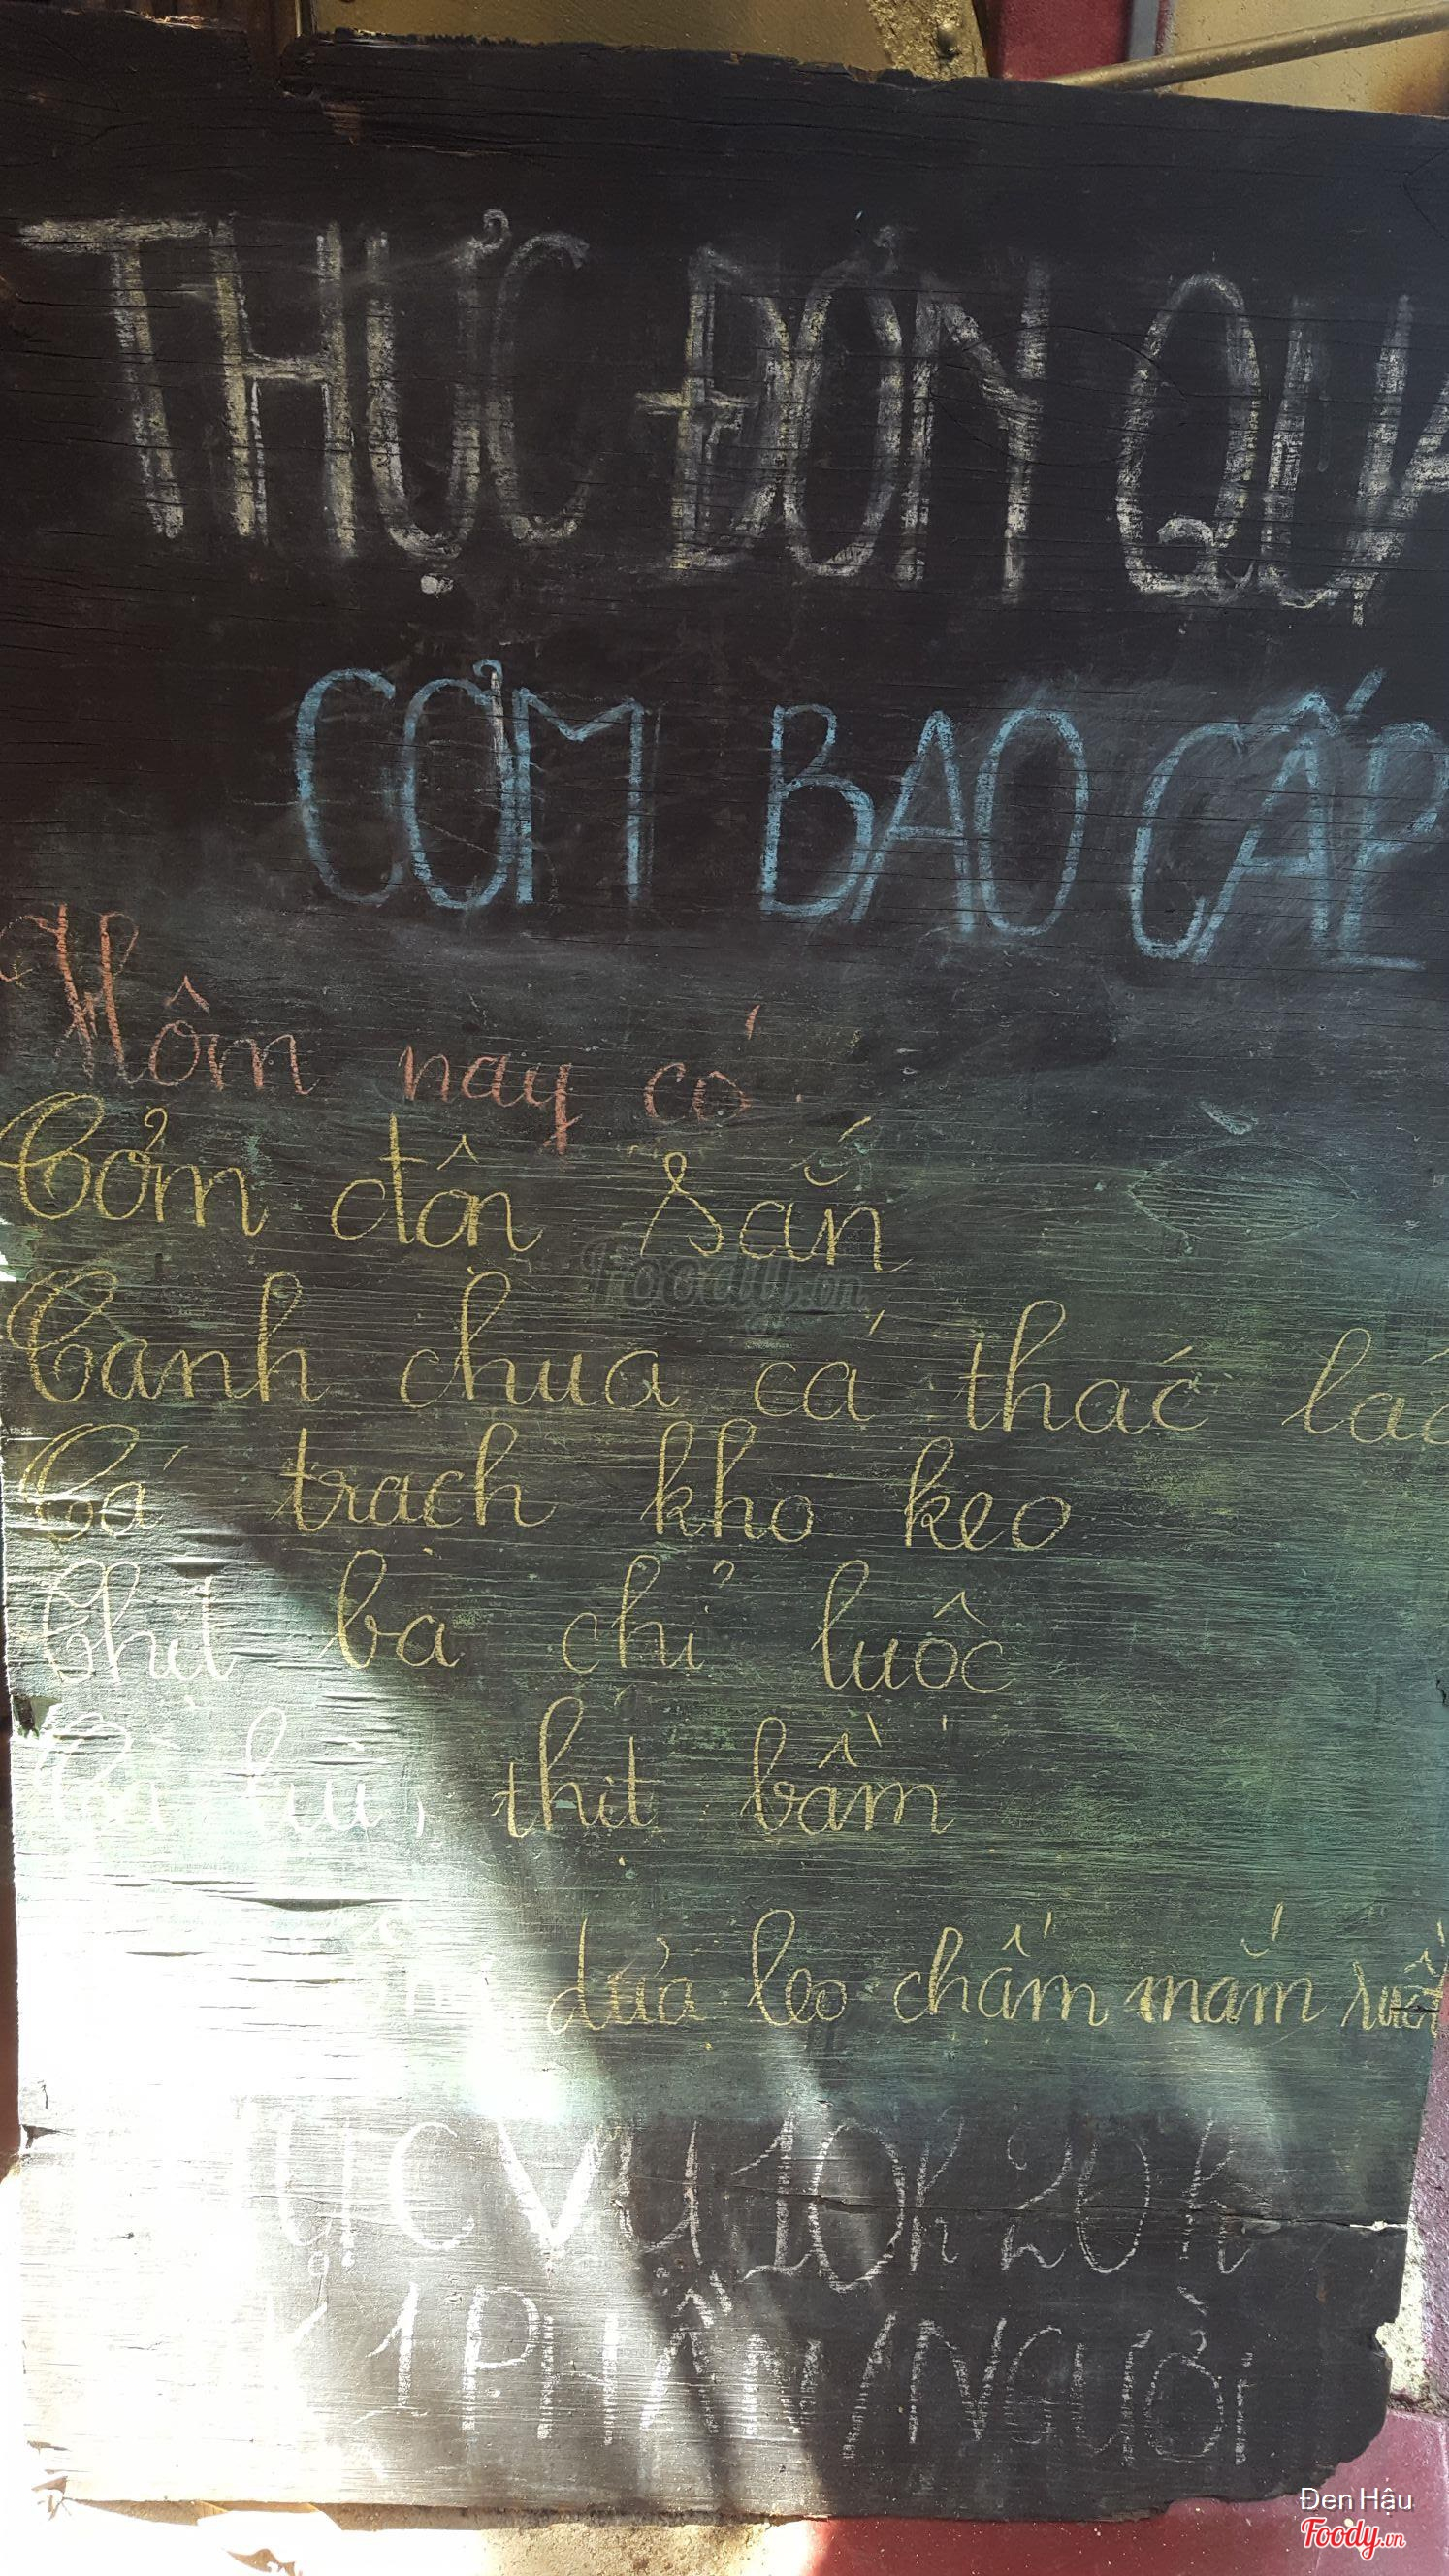 THỰC ĐƠN QUA
CƠM BAO CẤP
Hôm nay có
Cơm độn sắn
Canh chua cá thác lác
Cá trạch kho keo
Thịt bà chỉ luộc
thịt bầm
dưa leo chấm mắm ruốc
VỤ 10h 20h
1 PHẦN/NGƯỜI
Foody.vn
Đen Hậu
Foody.vn